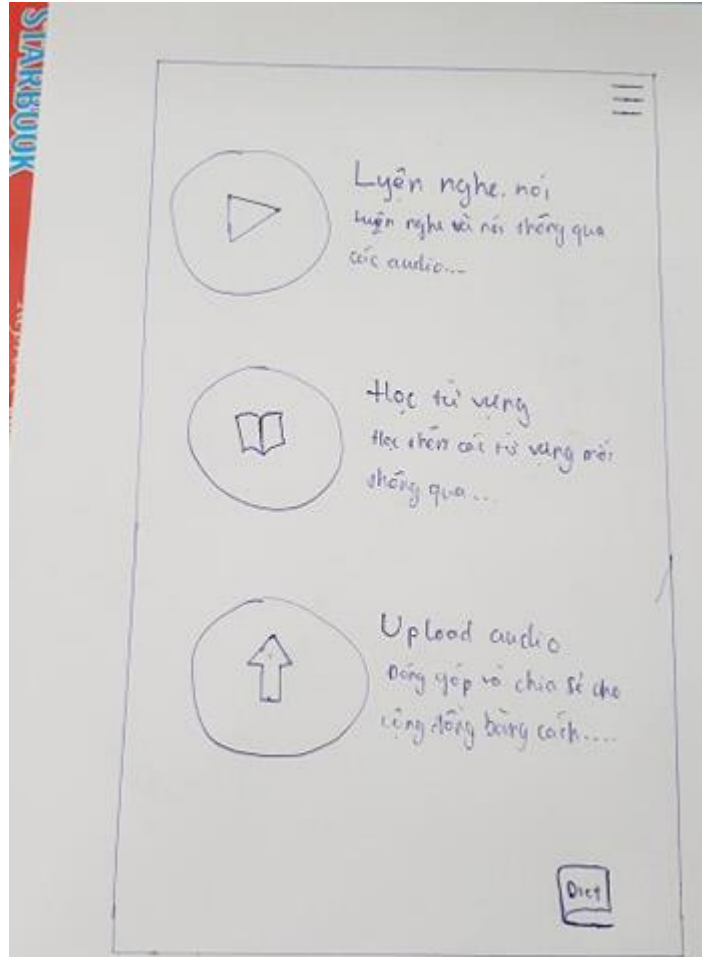 STARBOOK
Luyện nghe. nói
Luyện nghe và nói thông qua
các audio...
Học từ vựng
Học thêm các từ vựng mới
thông qua ...
Upload audio
Đóng góp và chia sẻ cho
cộng đồng bằng cách....
Dict